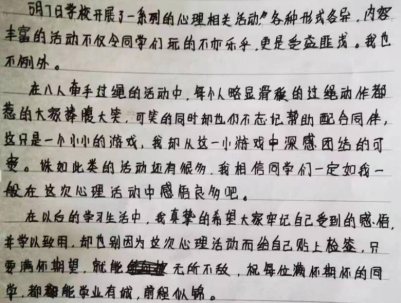 5月7日学校开展了一系列的心理相关活动"各种形式各异,内容
丰富的活动不仅令同学们玩的不亦乐乎,更是受益匪浅。我也
不例外。
在八人牵手过绳的活动中,每个人略显滑稽的过绳动作都
惹的大家捧腹大笑,可笑的同时却也们不忘记帮助配合同伴,
这只是一个小小的游戏,我却从这一小游戏中深感团结的可
贵。诸如此类的活动还有很多,我相信同学们一定如我一
般在这次心理活动中感悟良多吧。
在以后的学习生活中,我真挚的希望大家牢记自己受到的感悟,
并学以致用,却也别因为这次心理活动而给自己贴上标签,只
要满怀期望,就能无所不敌,祝每位满怀期怀的同
学,都能学业有成,前程似锦。